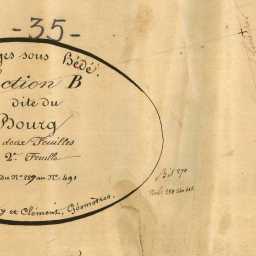 -35-
ges sous Bédé.
ction B
dite du
Bourg
deux Feuilles
2e Feuille
Du No 229 au No 491
y et Clément, Géomètres.
Bis 270